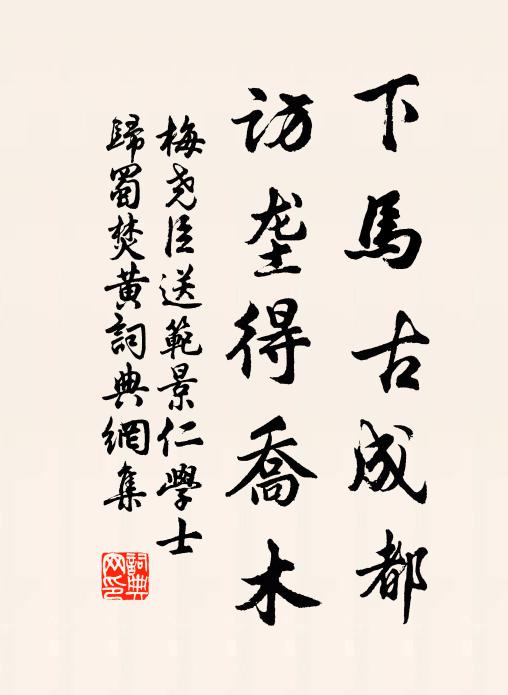 下馬古成都
访垄得喬木
梅尧臣送範景仁學士
歸蜀焚黃詞典網集
詞典
网印